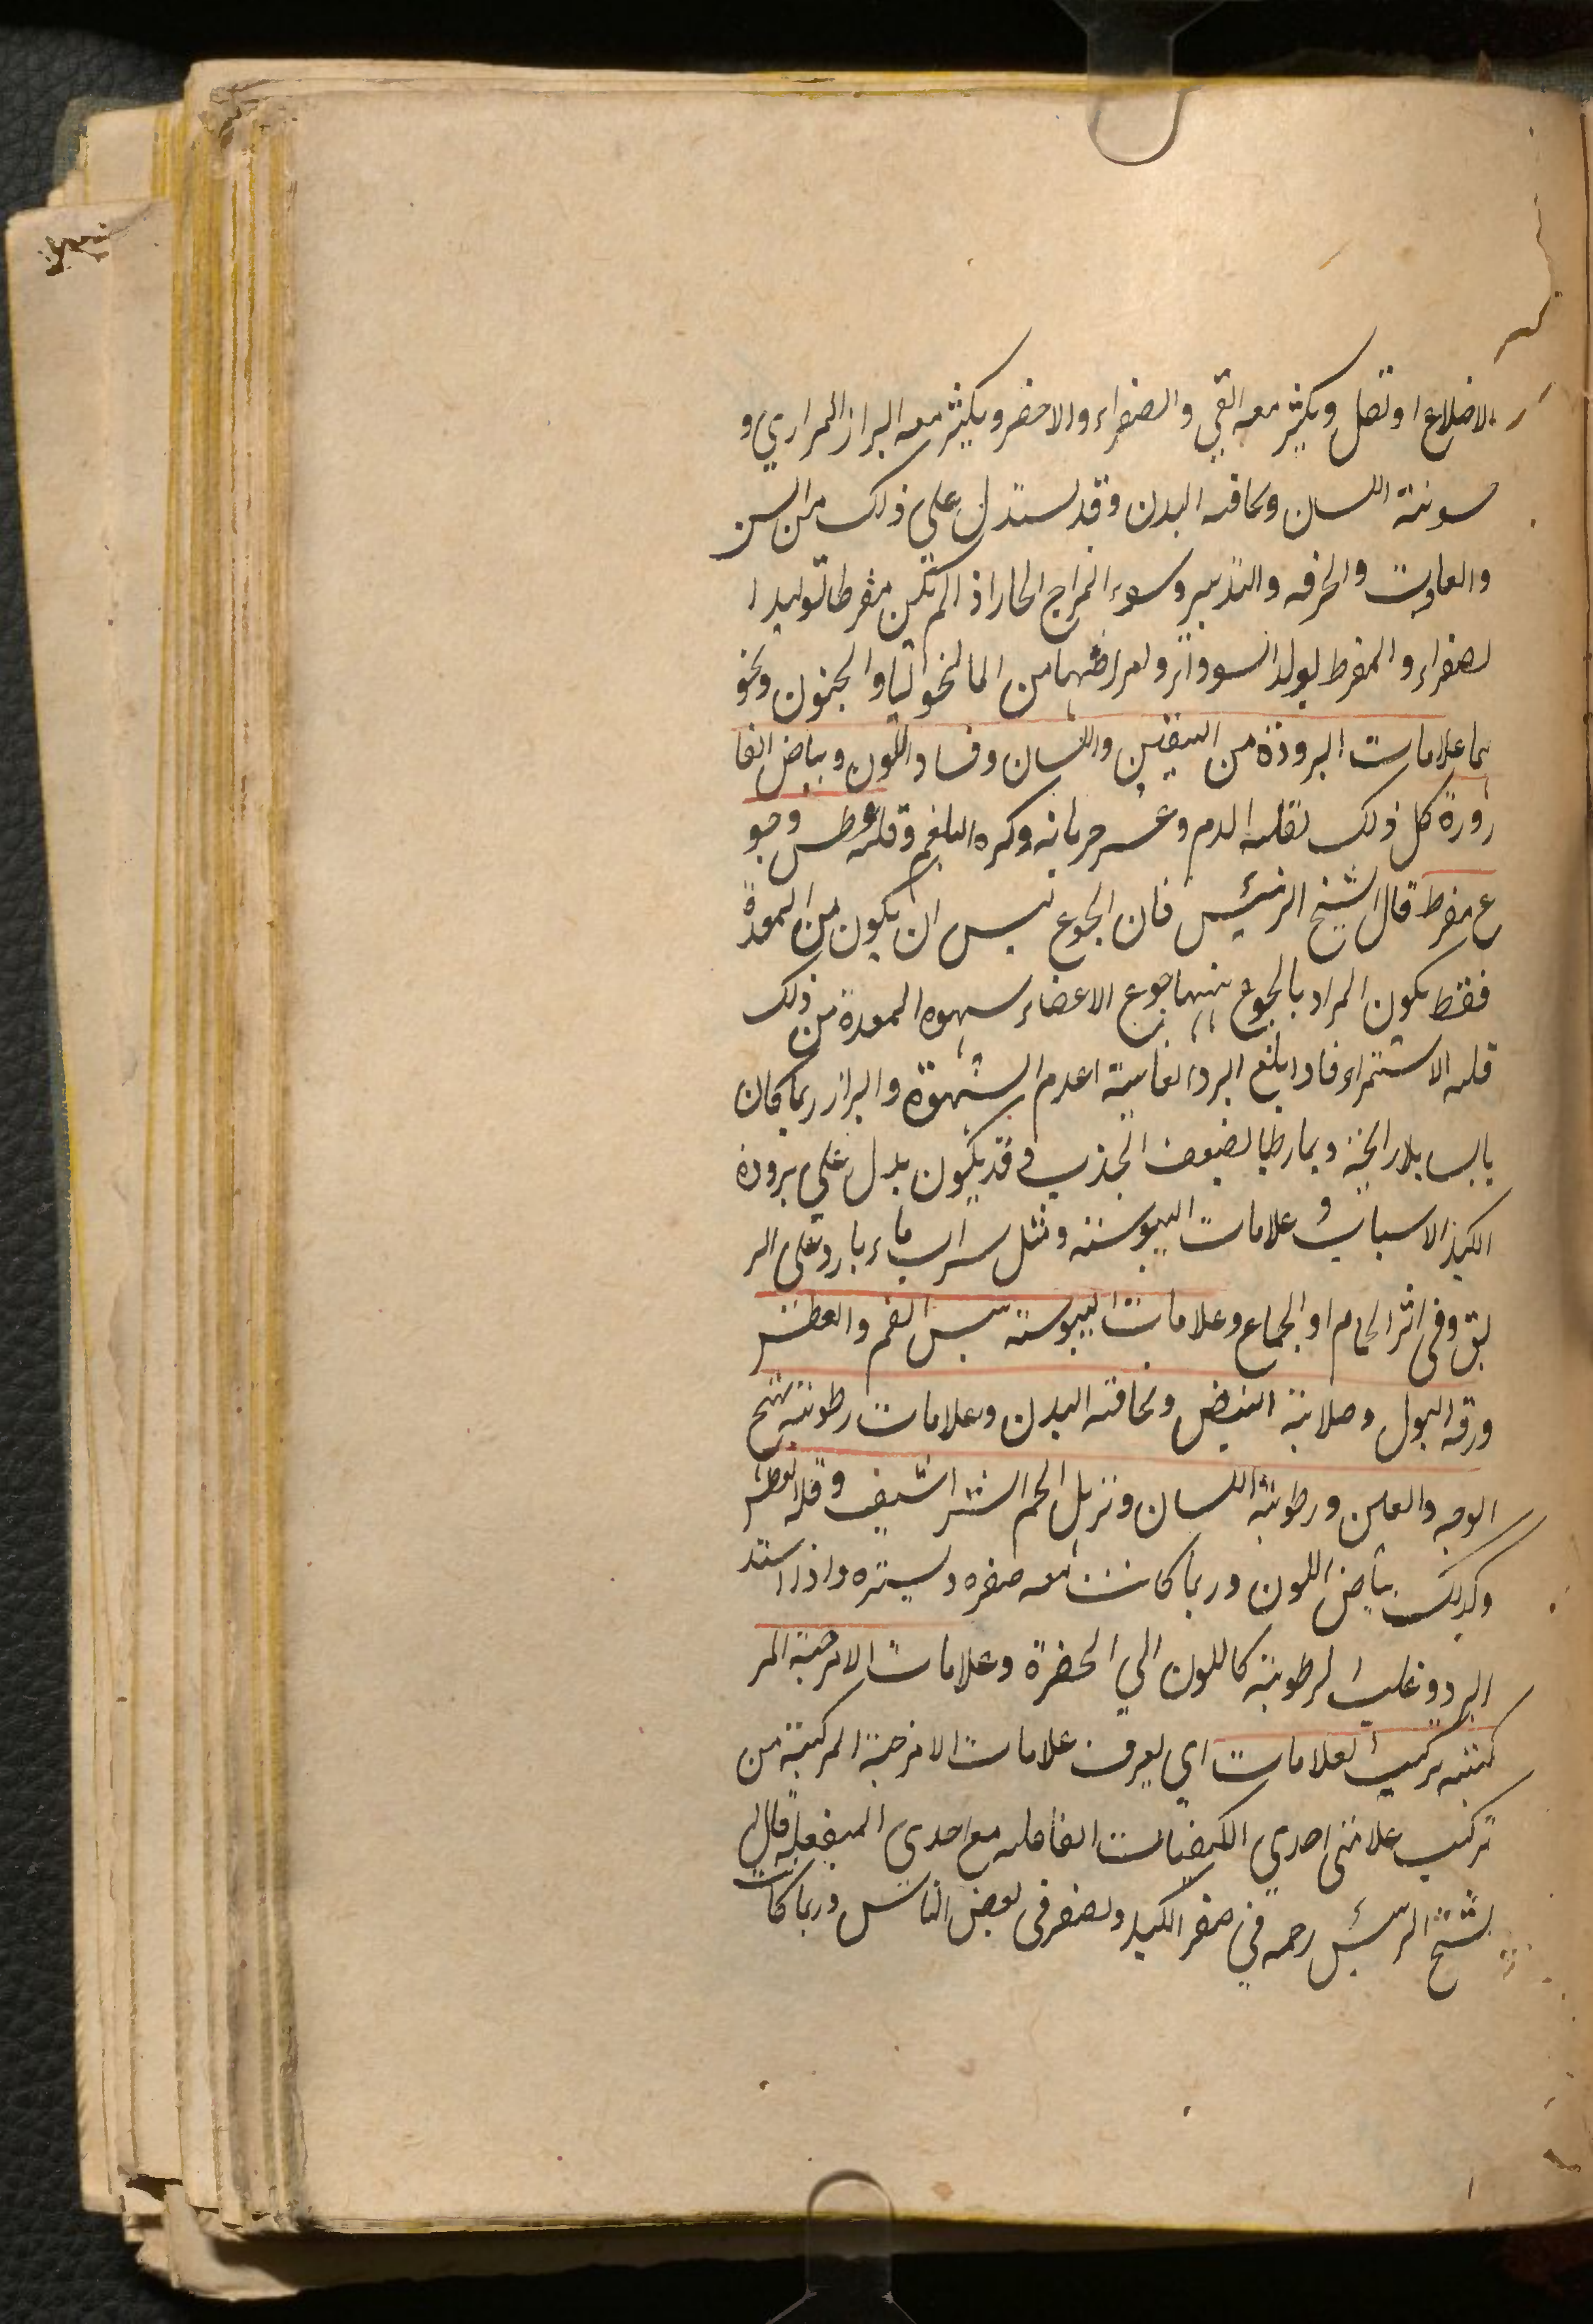 الاضلاع او ثقل ويكثر معه القي والصفراء والاخضر ويكثر معه البراز المراري و
سونته اللسان ونحافه البدن وقد يستدل علي ذلك من السن
والعادت والحرفه والتدبير وسوء المزاج الحار اذ الم يكن مفرطا تولید ا
لصفراء والمفرط يولد السوداء وامراضهما من المالنخوليا والجنون ونحو
هما علامات البرودة من الشفتين واللسان وفساد اللون وبياض القا
رورة كل ذلك لقله الدم وعسر جريانه وكثره البلغم وقلته عطس وجو
ع مفرط قال الشيخ الرئيس فان الجوع ليس ان يكون من المعدة
فقط يكون المراد بالجوع ههنا جوع الاعضاء سهوه المعدة من ذلك
قله الاستمراء فاد ابلغ البرد الغاية اعدم الشهوة والبراز ربما كان
يابسا بلا رائحة وبما رطبا لضعف الجذب و قد يكون يدل علي برودة
الكبد الاسباب و علامات اليبوسته ومثل شراب ماء بارد علي الر
يق وفي اثر الحمام او الجماع وعلامات اليبوسته يبس الفم والعطش
ورقه البول وصلابته النبض ونحافته البدن وعلامات رطوبته تهيج
الوجه والعين ورطوبته اللسان وترهل الحم الشراشيف وقله العطش
وكذلك بياض اللون وربما كانت معه صفره يسيره واذا اشتد
البرد وغلب الرطوبة كاللون الي الخضرة وعلامات الامزجة المر
كبته تركيب العلامات اي يعرف علامات الامزجة المركبة من
تركيب علامتي احدي الكيفيات الفاعله مع احدي المنفعله قال
لشيخ الرئيس رحمه في صغر الكبد وتصغر في بعض الناس وربما كانت